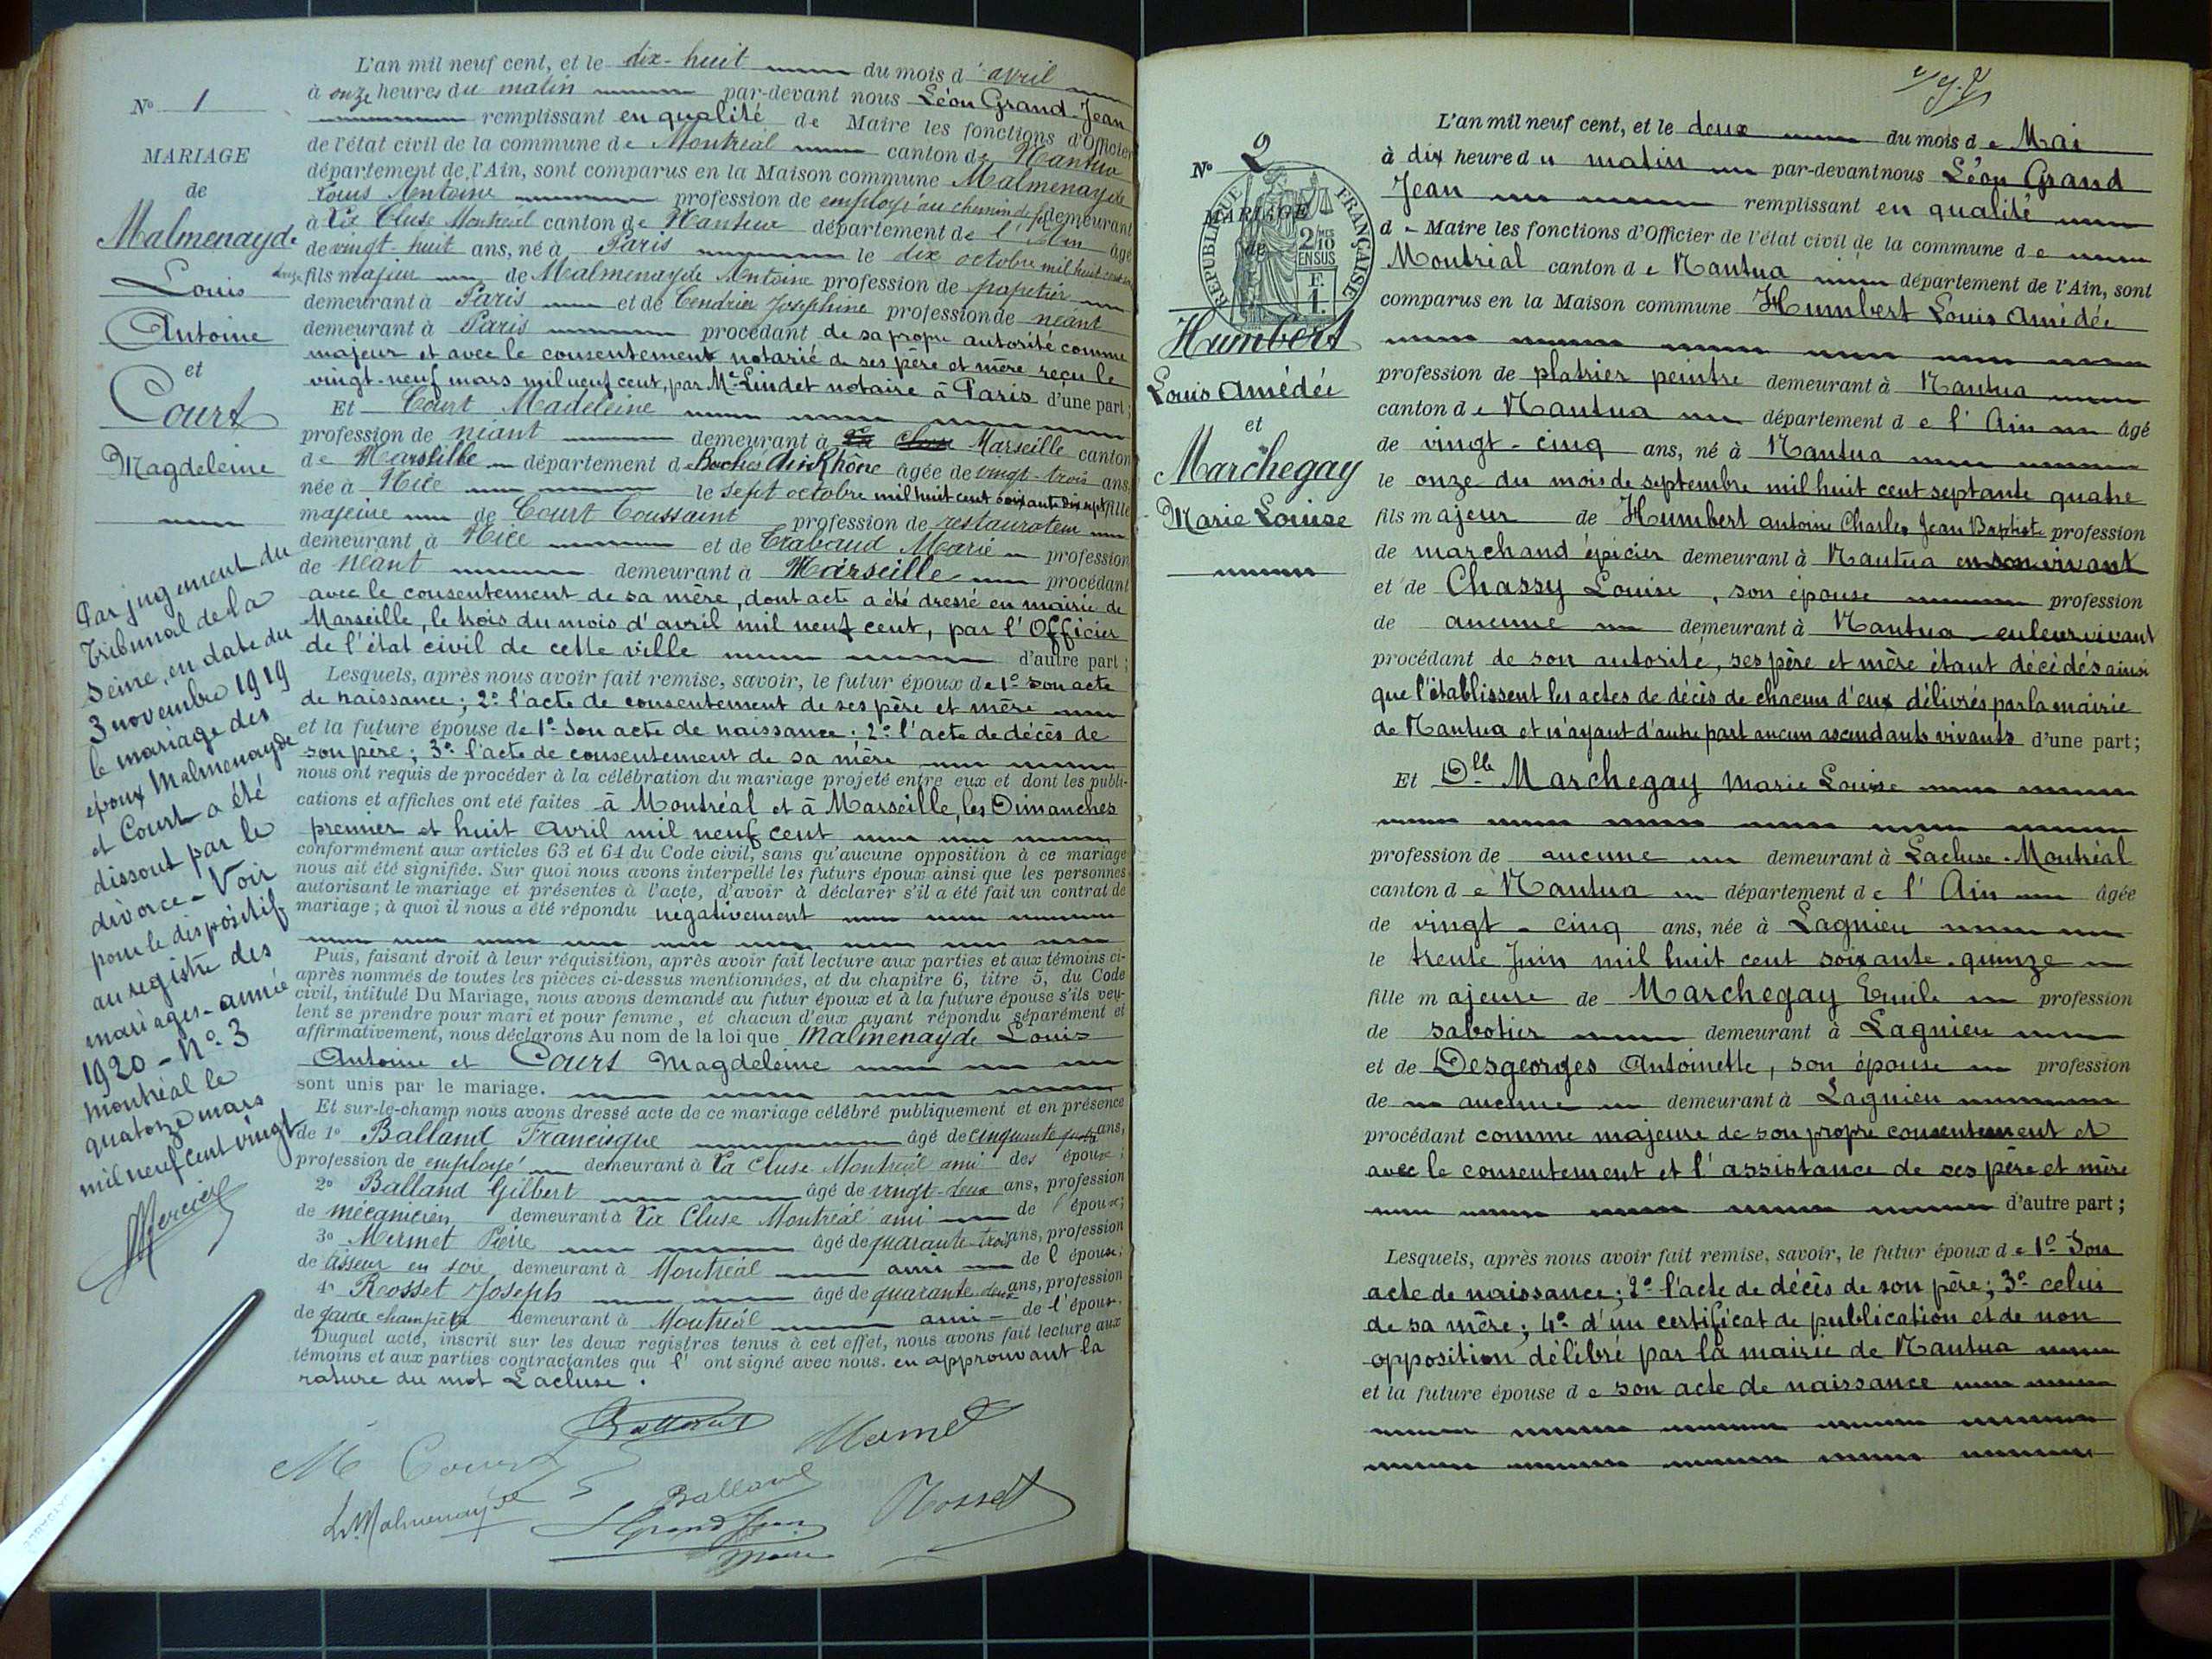 N° 1
MARIAGE
de
Malmenayde
Louis
Antoine
et
Court
Magdeleine
Par jugement du
Tribunal de la
Seine, en date du
3 novembre 1919
le mariage des
époux Malmenayde
et Court a été
dissout par le
divorce - Voir
pour le dispositif
au registre des
mariages - année
1920 - N° 3
Montréal le
quatorze mars
mil neuf cent vingt
Mercier
L'an mil neuf cent, et le dix-huit du mois d'avril
à onze heures du matin par-devant nous Léon Grand-Jean
remplissant en qualité de Maire les fonctions d'Officier
de l'état civil de la commune de Montréal canton de Nantua
département de l'Ain, sont comparus en la Maison commune Malmenayde
Louis Antoine profession de employé au chemin de f. demeurant
à La Cluse Montréal canton de Nantua département de l'Ain âgé
de vingt-huit ans, né à Paris le dix octobre mil huit cent
fils majeur de Malmenayde Antoine profession de papetier
demeurant à Paris et de Cendrier Joséphine profession de néant
demeurant à Paris procédant de sa propre autorité comme
majeur et avec le consentement notarié de ses père et mère reçu le
vingt-neuf mars mil neuf cent, par Me Lindet notaire à Paris d'une part;
Et Court Madeleine
profession de néant demeurant à La Cluse Marseille canton
de Marseille département d Bouches du Rhône âgée de vingt-trois ans,
née à Nice le sept octobre mil huit cent soixante dix sept fille
majeure de Court Toussaint profession de restaurateur
demeurant à Nice et de Trabaud Marie profession
de néant demeurant à Marseille procédant
avec le consentement de sa mère, dont acte a été dressé en mairie de
Marseille, le trois du mois d'avril mil neuf cent, par l'Officier
de l'état civil de cette ville d'autre part;
Lesquels, après nous avoir fait remise, savoir, le futur époux de 1° son acte
de naissance; 2° l'acte de consentement de ses père et mère
et la future épouse de 1° son acte de naissance; 2° l'acte de décès de
son père; 3° l'acte de consentement de sa mère
nous ont requis de procéder à la célébration du mariage projeté entre eux et dont les publi-
cations et affiches ont été faites à Montréal et à Marseille, les Dimanches
premier et huit avril mil neuf cent
conformément aux articles 63 et 64 du Code civil, sans qu'aucune opposition à ce mariage
nous ait été signifiée. Sur quoi nous avons interpellé les futurs époux ainsi que les personnes
autorisant le mariage et présentes à l'acte, d'avoir à déclarer s'il a été fait un contrat de
mariage; à quoi il nous a été répondu négativement
Puis, faisant droit à leur réquisition, après avoir fait lecture aux parties et aux témoins ci-
après nommés de toutes les pièces ci-dessus mentionnées, et du chapitre 6, titre 5, du Code
civil, intitulé Du Mariage, nous avons demandé au futur époux et à la future épouse s'ils veu-
lent se prendre pour mari et pour femme, et chacun d'eux ayant répondu séparément et
affirmativement, nous déclarons Au nom de la loi que Malmenayde Louis
Antoine et Court Magdeleine
sont unis par le mariage.
Et sur-le-champ nous avons dressé acte de ce mariage célébré publiquement et en présence
de 1° Balland Francisque âgé de cinquante ans,
profession de employé demeurant à La Cluse Montréal ami des époux;
2° Balland Gilbert âgé de vingt-deux ans, profession
de mécanicien demeurant à La Cluse Montréal ami de l'époux;
3° Mermet Pierre âgé de quarante-trois ans, profession
de tisseur en soie demeurant à Montréal ami de l'épouse;
4° Rosset Joseph âgé de quarante-deux ans, profession
de garde champêtre demeurant à Montréal ami de l'épouse.
Duquel acte, inscrit sur les deux registres tenus à cet effet, nous avons fait lecture aux
témoins et aux parties contractantes qui l'ont signé avec nous. en approuvant la
rature du mot Lacluse.
Balland
Mermet
M Court
Balland
L. Malmenayde
L Grand Jean
Rosset
Maire
N° 2
RÉPUBLIQUE FRANÇAISE
2/10 MES
EN SUS
F.
1.
MARIAGE
de
Humbert
Louis Amédée
et
Marchegay
Marie Louise
L'an mil neuf cent, et le deux du mois de Mai
à dix heure du matin par-devant nous Léon Grand
Jean remplissant en qualité
de Maire les fonctions d'Officier de l'état civil de la commune de
Montréal canton de Nantua département de l'Ain, sont
comparus en la Maison commune Humbert Louis Amédée
profession de platrier peintre demeurant à Nantua
canton de Nantua département de l'Ain âgé
de vingt-cinq ans, né à Nantua
le onze du mois de septembre mil huit cent septante quatre
fils majeur de Humbert Antoine Charles Jean Baptiste profession
de marchand épicier demeurant à Nantua en son vivant
et de Chassy Louise, son épouse profession
de aucune demeurant à Nantua en leur vivant
procédant de son autorité, ses père et mère étant décédés ainsi
que l'établissent les actes de décès de chacun d'eux délivrés par la mairie
de Nantua et n'ayant d'autre part aucun ascendants vivants d'une part;
Et Dlle Marchegay Marie Louise
profession de aucune demeurant à Lacluse-Montréal
canton de Nantua département de l'Ain âgée
de vingt-cinq ans, née à Lagnieu
le trente Juin mil huit cent soixante-quinze
fille majeure de Marchegay Emile profession
de sabotier demeurant à Lagnieu
et de Desgeorges Antoinette, son épouse profession
de aucune demeurant à Lagnieu
procédant comme majeure de son propre consentement et
avec le consentement et l'assistance de ses père et mère
d'autre part;
Lesquels, après nous avoir fait remise, savoir, le futur époux de 1° Son
acte de naissance; 2° l'acte de décès de son père; 3° celui
de sa mère; 4° d'un certificat de publication et de non
opposition délibré par la mairie de Nantua
et la future épouse de son acte de naissance